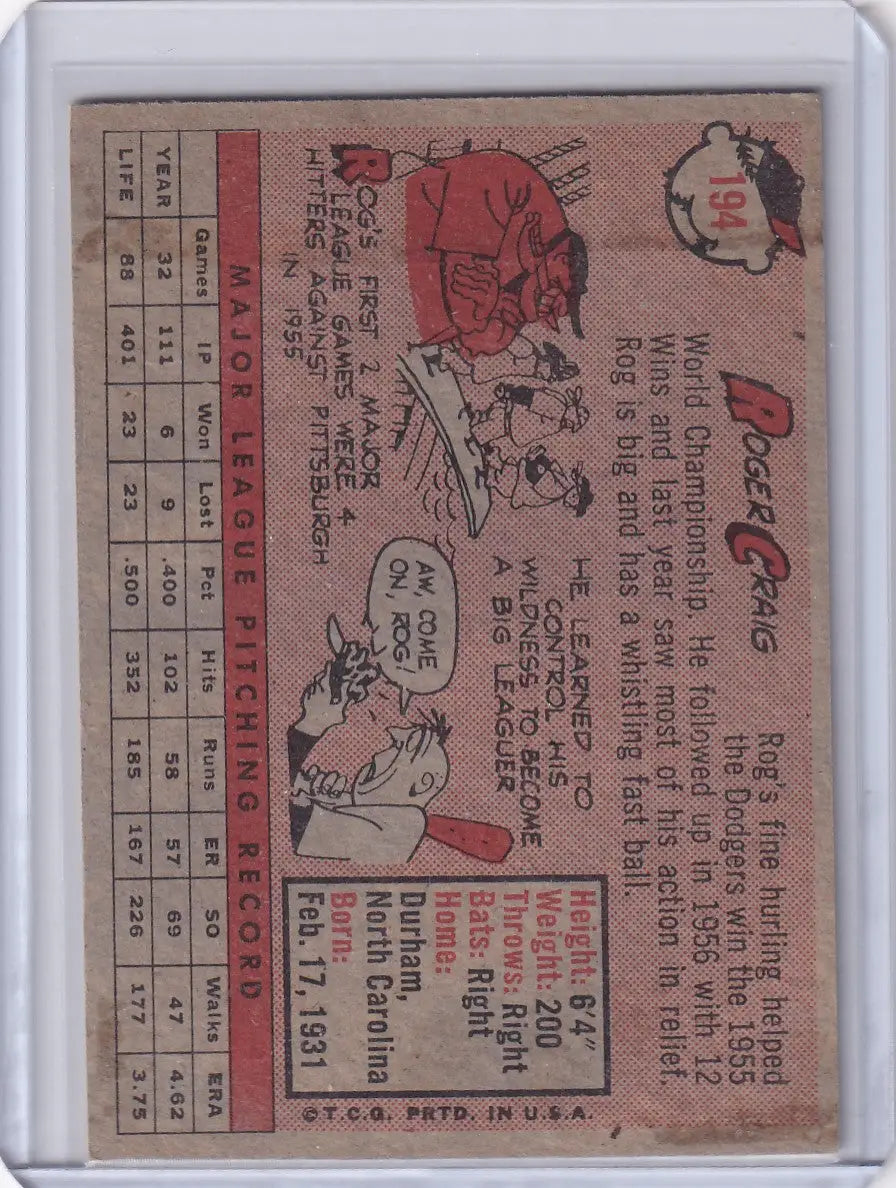 194
ROGER CRAIG
Rog's fine hurling helped
the Dodgers win the 1955
World Championship. He followed up in 1956 with 12
Wins and last year saw most of his action in relief.
Rog is big and has a whistling fast ball.
HE LEARNED TO
CONTROL HIS
WILDNESS TO BECOME
A BIG LEAGUER
ROG'S FIRST 2 MAJOR
LEAGUE GAMES WERE 4
HITTERS AGAINST PITTSBURGH
IN 1955
AW, COME
ON, ROG!
Height: 6'4"
Weight: 200
Throws: Right
Bats: Right
Home:
Durham,
North Carolina
Born:
Feb. 17, 1931
©T.C.G. PRTD. IN U.S.A.
MAJOR LEAGUE PITCHING RECORD
Games IP Won Lost Pct Hits Runs ER SO Walks ERA
YEAR 32 111 6 9 .400 102 58 57 69 47 4.62
LIFE 88 401 23 23 .500 352 185 167 226 177 3.75